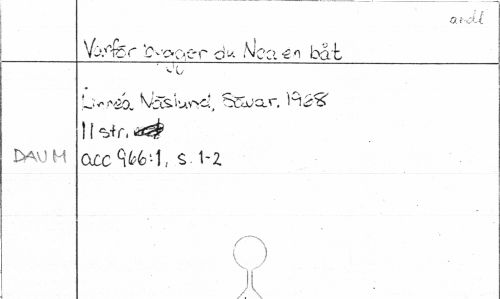 andl
Varför bygger du Noa en båt
Linnéa Näslund, Sävar. 1968
11 str.
DAUM acc 966:1, s. 1-2